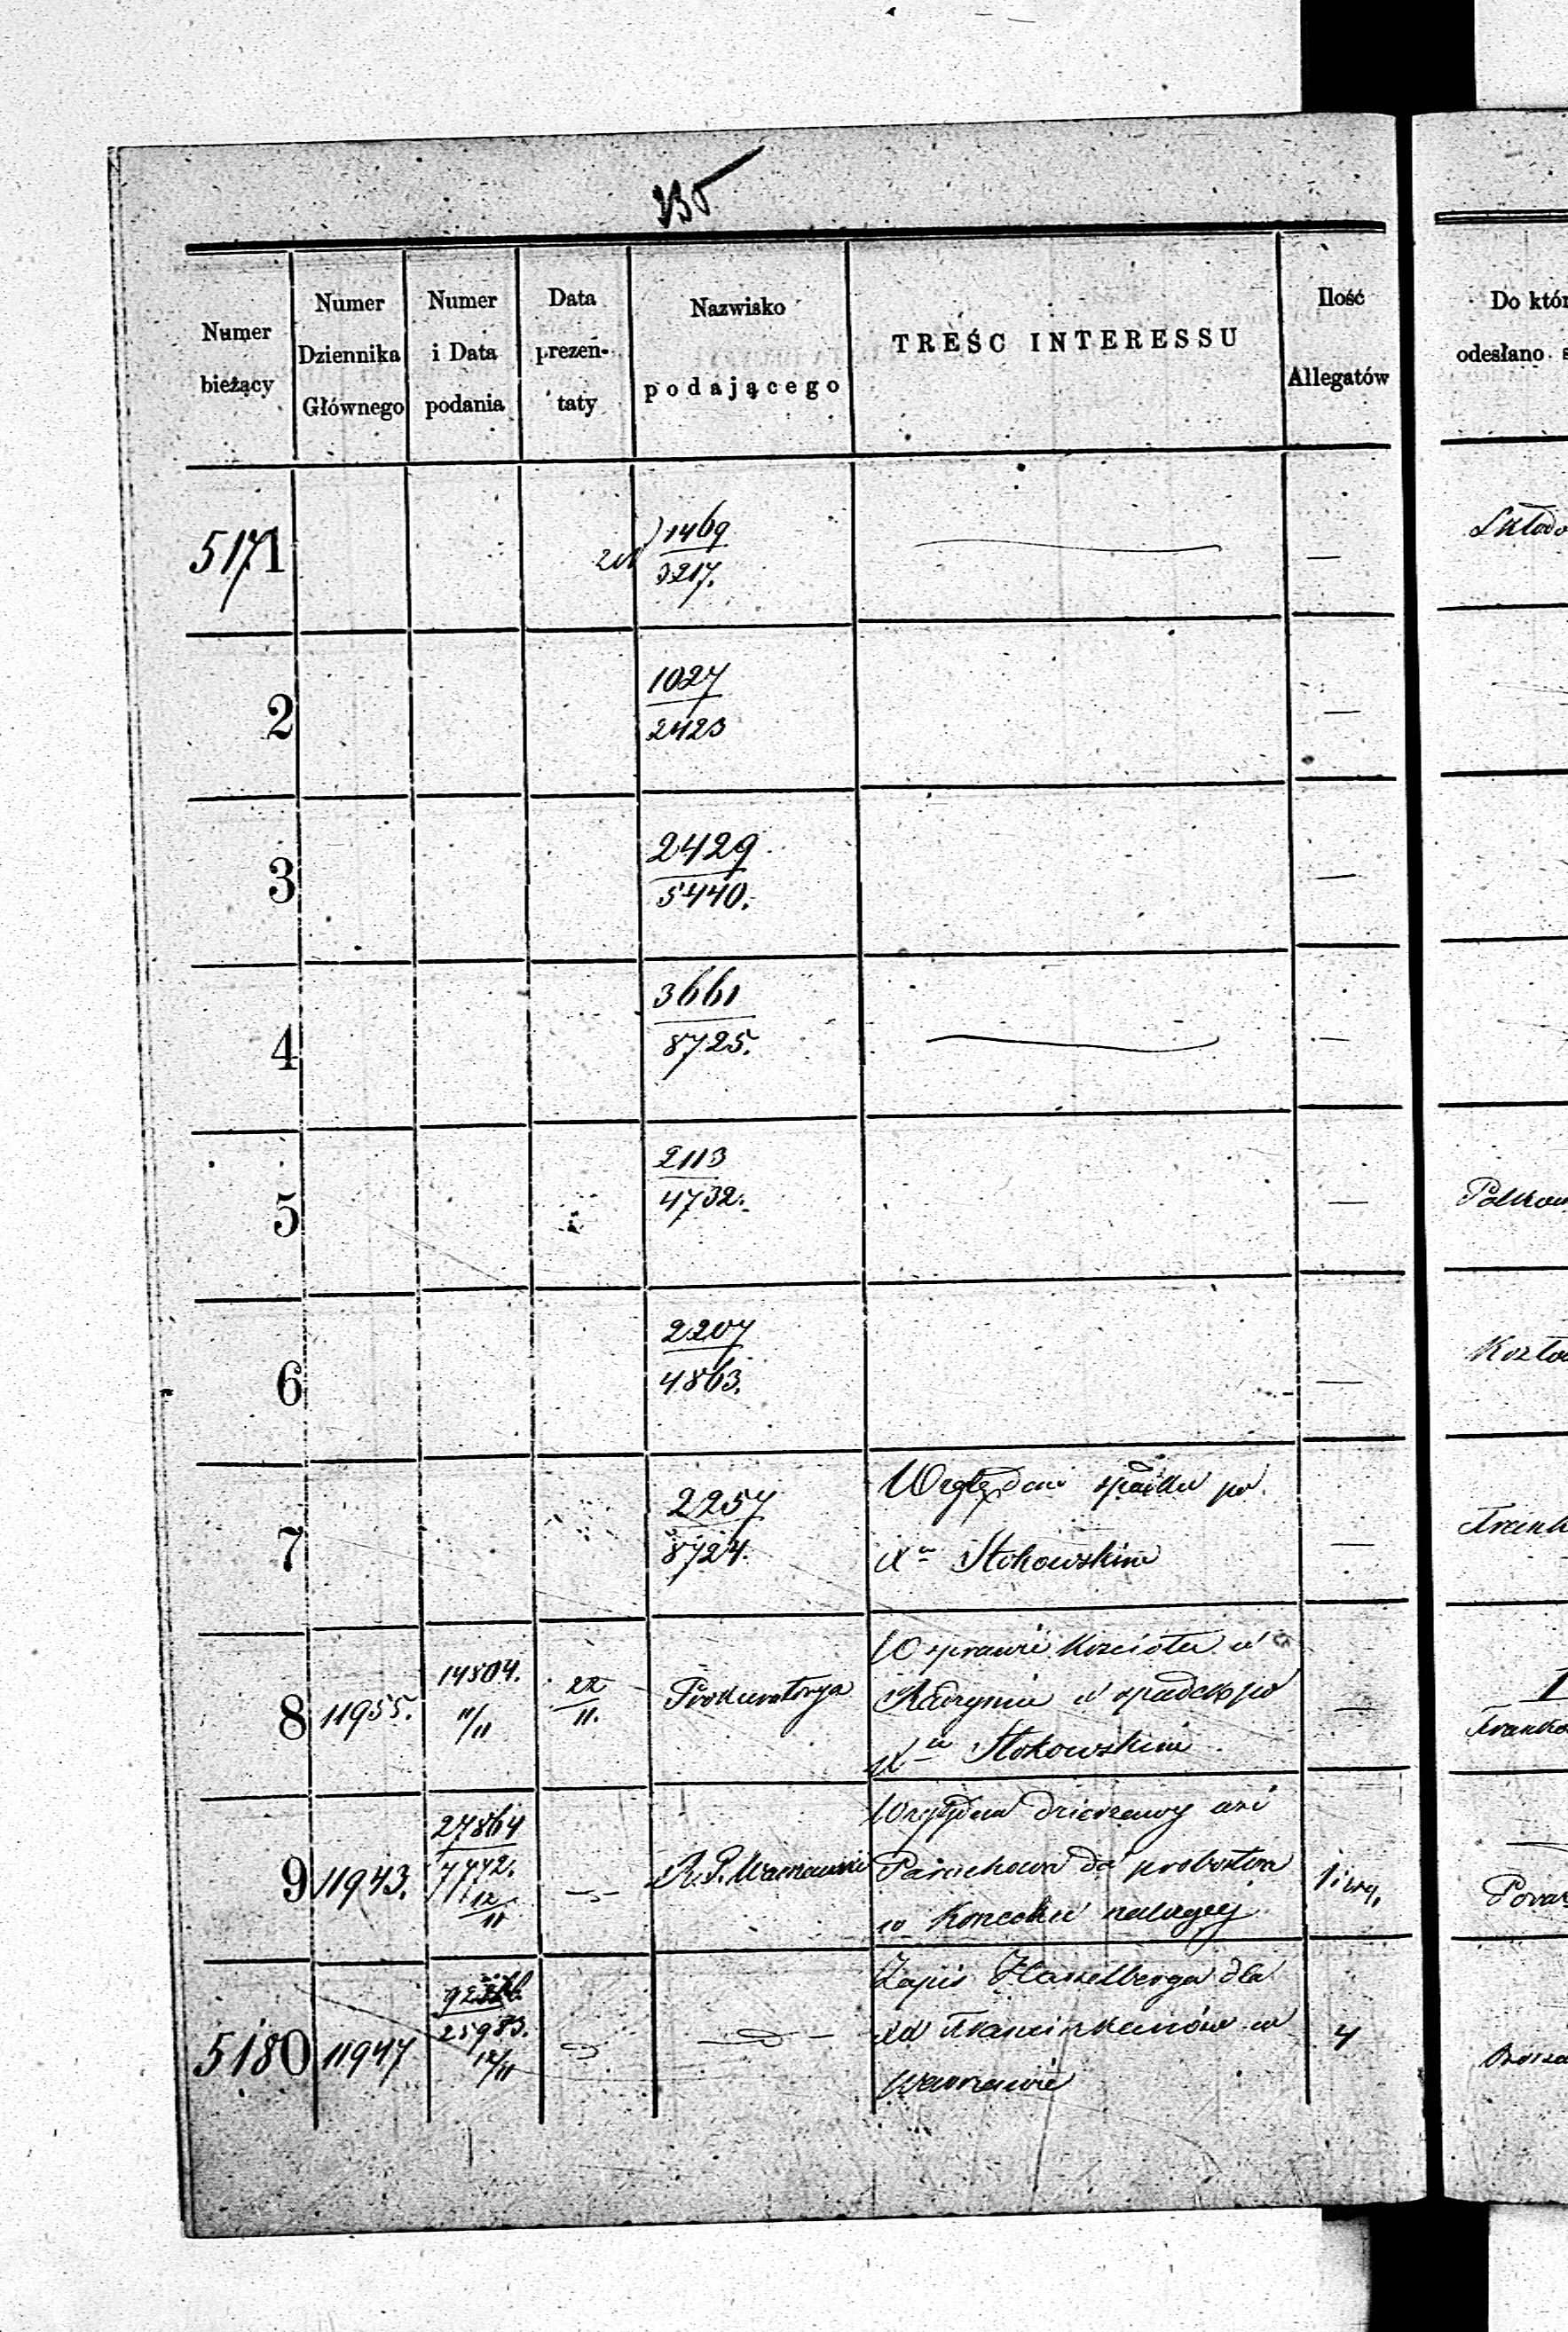 235
Numer bieżący
Numer Dziennika Głównego
Numer i Data podania
Data prezentaty
Nazwisko podającego
TREŚC INTERESSU
Ilość Allegatów
Do któr
odesłano s
5171
1469
3217.
—
Skłodo
2
1027
2423
—
3
2429
5440.
—
4
3661
8725.
—
5
2113
4732.
—
6
2207
4863.
—
Kozło
7
2257
8724.
Względem spadku po
X Stokowskim
—
8
11955.
14504.
11/11
22
11.
Prokuratorya
W sprawie Kościoła w
Radzyniu o spadek po
X Stokowskim
—
9
11943.
27864
7772.
12
11
R. G. Warszawski
Względem dzierżawy wsi
do probostwa
w należącej
1
5180
11947
25983.
12/11
Zapis Hasselberga dla
XX Franciszkanów w
Warszawie
4